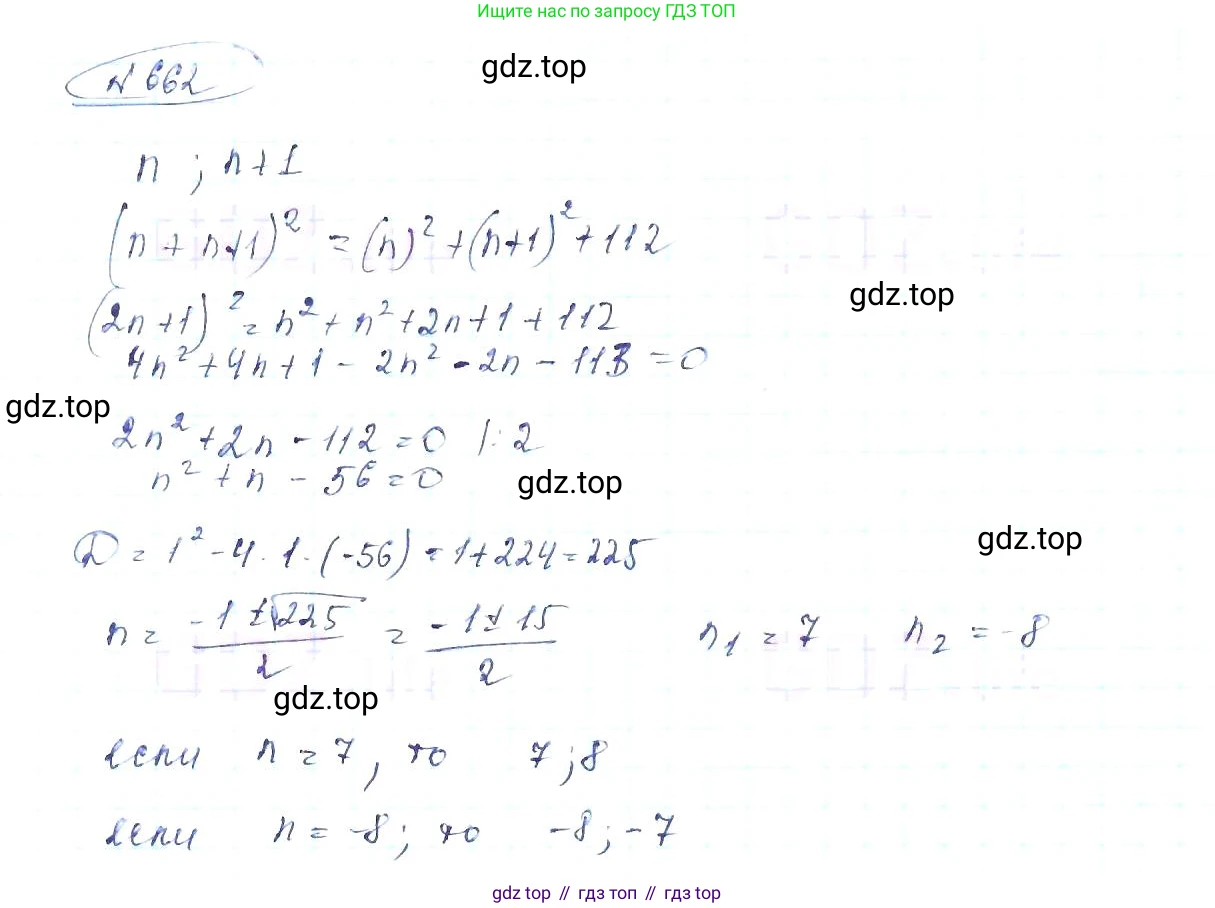 Ищите нас по запросу ГДЗ ТОП
N 662
gdz.top
n ; n+1
(n + n+1)² = (n)² + (n+1)² + 112
gdz.top
(2n+1)² = n² + n² + 2n + 1 + 112
4n² + 4n + 1 - 2n² - 2n - 113 = 0
gdz.top
2n² + 2n - 112 = 0 |: 2
n² + n - 56 = 0
gdz.top
gdz.top
D = 1² - 4 · 1 · (-56) = 1 + 224 = 225
n = (-1 ± √225)/2 = (-1 ± 15)/2 n₁ = 7 n₂ = -8
gdz.top
если n = 7, то 7 ; 8
если n = -8 ; то -8 ; -7
gdz top // гдз топ // gdz top